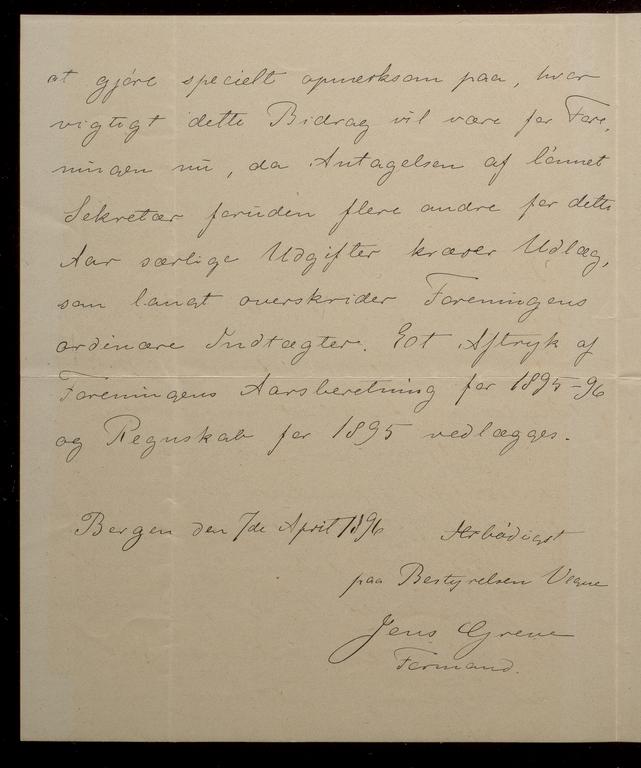 at gjøre specielt opmerksom paa, hvor
vigtigt dette Bidrag vil være for Fore,
ningen nu, da Antagelsen af lønnet
Sekretær foruden flere andre for dette
Aar særlige Udgifter kræver Udlæg,
som langt overskrider Foreningens
ordinære Indtægter. Eot Aftryk af
Foreningens Aarsberetning for 1895-96
og Regnskab for 1895 vedlægges.
Bergen den 7de April 1896 Ærbödigst
paa Bestyrelsen Vegne
Jens Greve
Formand.